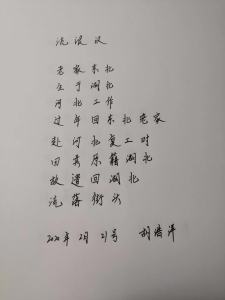 流浪汉
老家东北
生于湖北
河北工作
过年回东北老家
赴河北复工时
因其原籍湖北
故遣回湖北
流落街头
2020年2月21号 胡浩洋